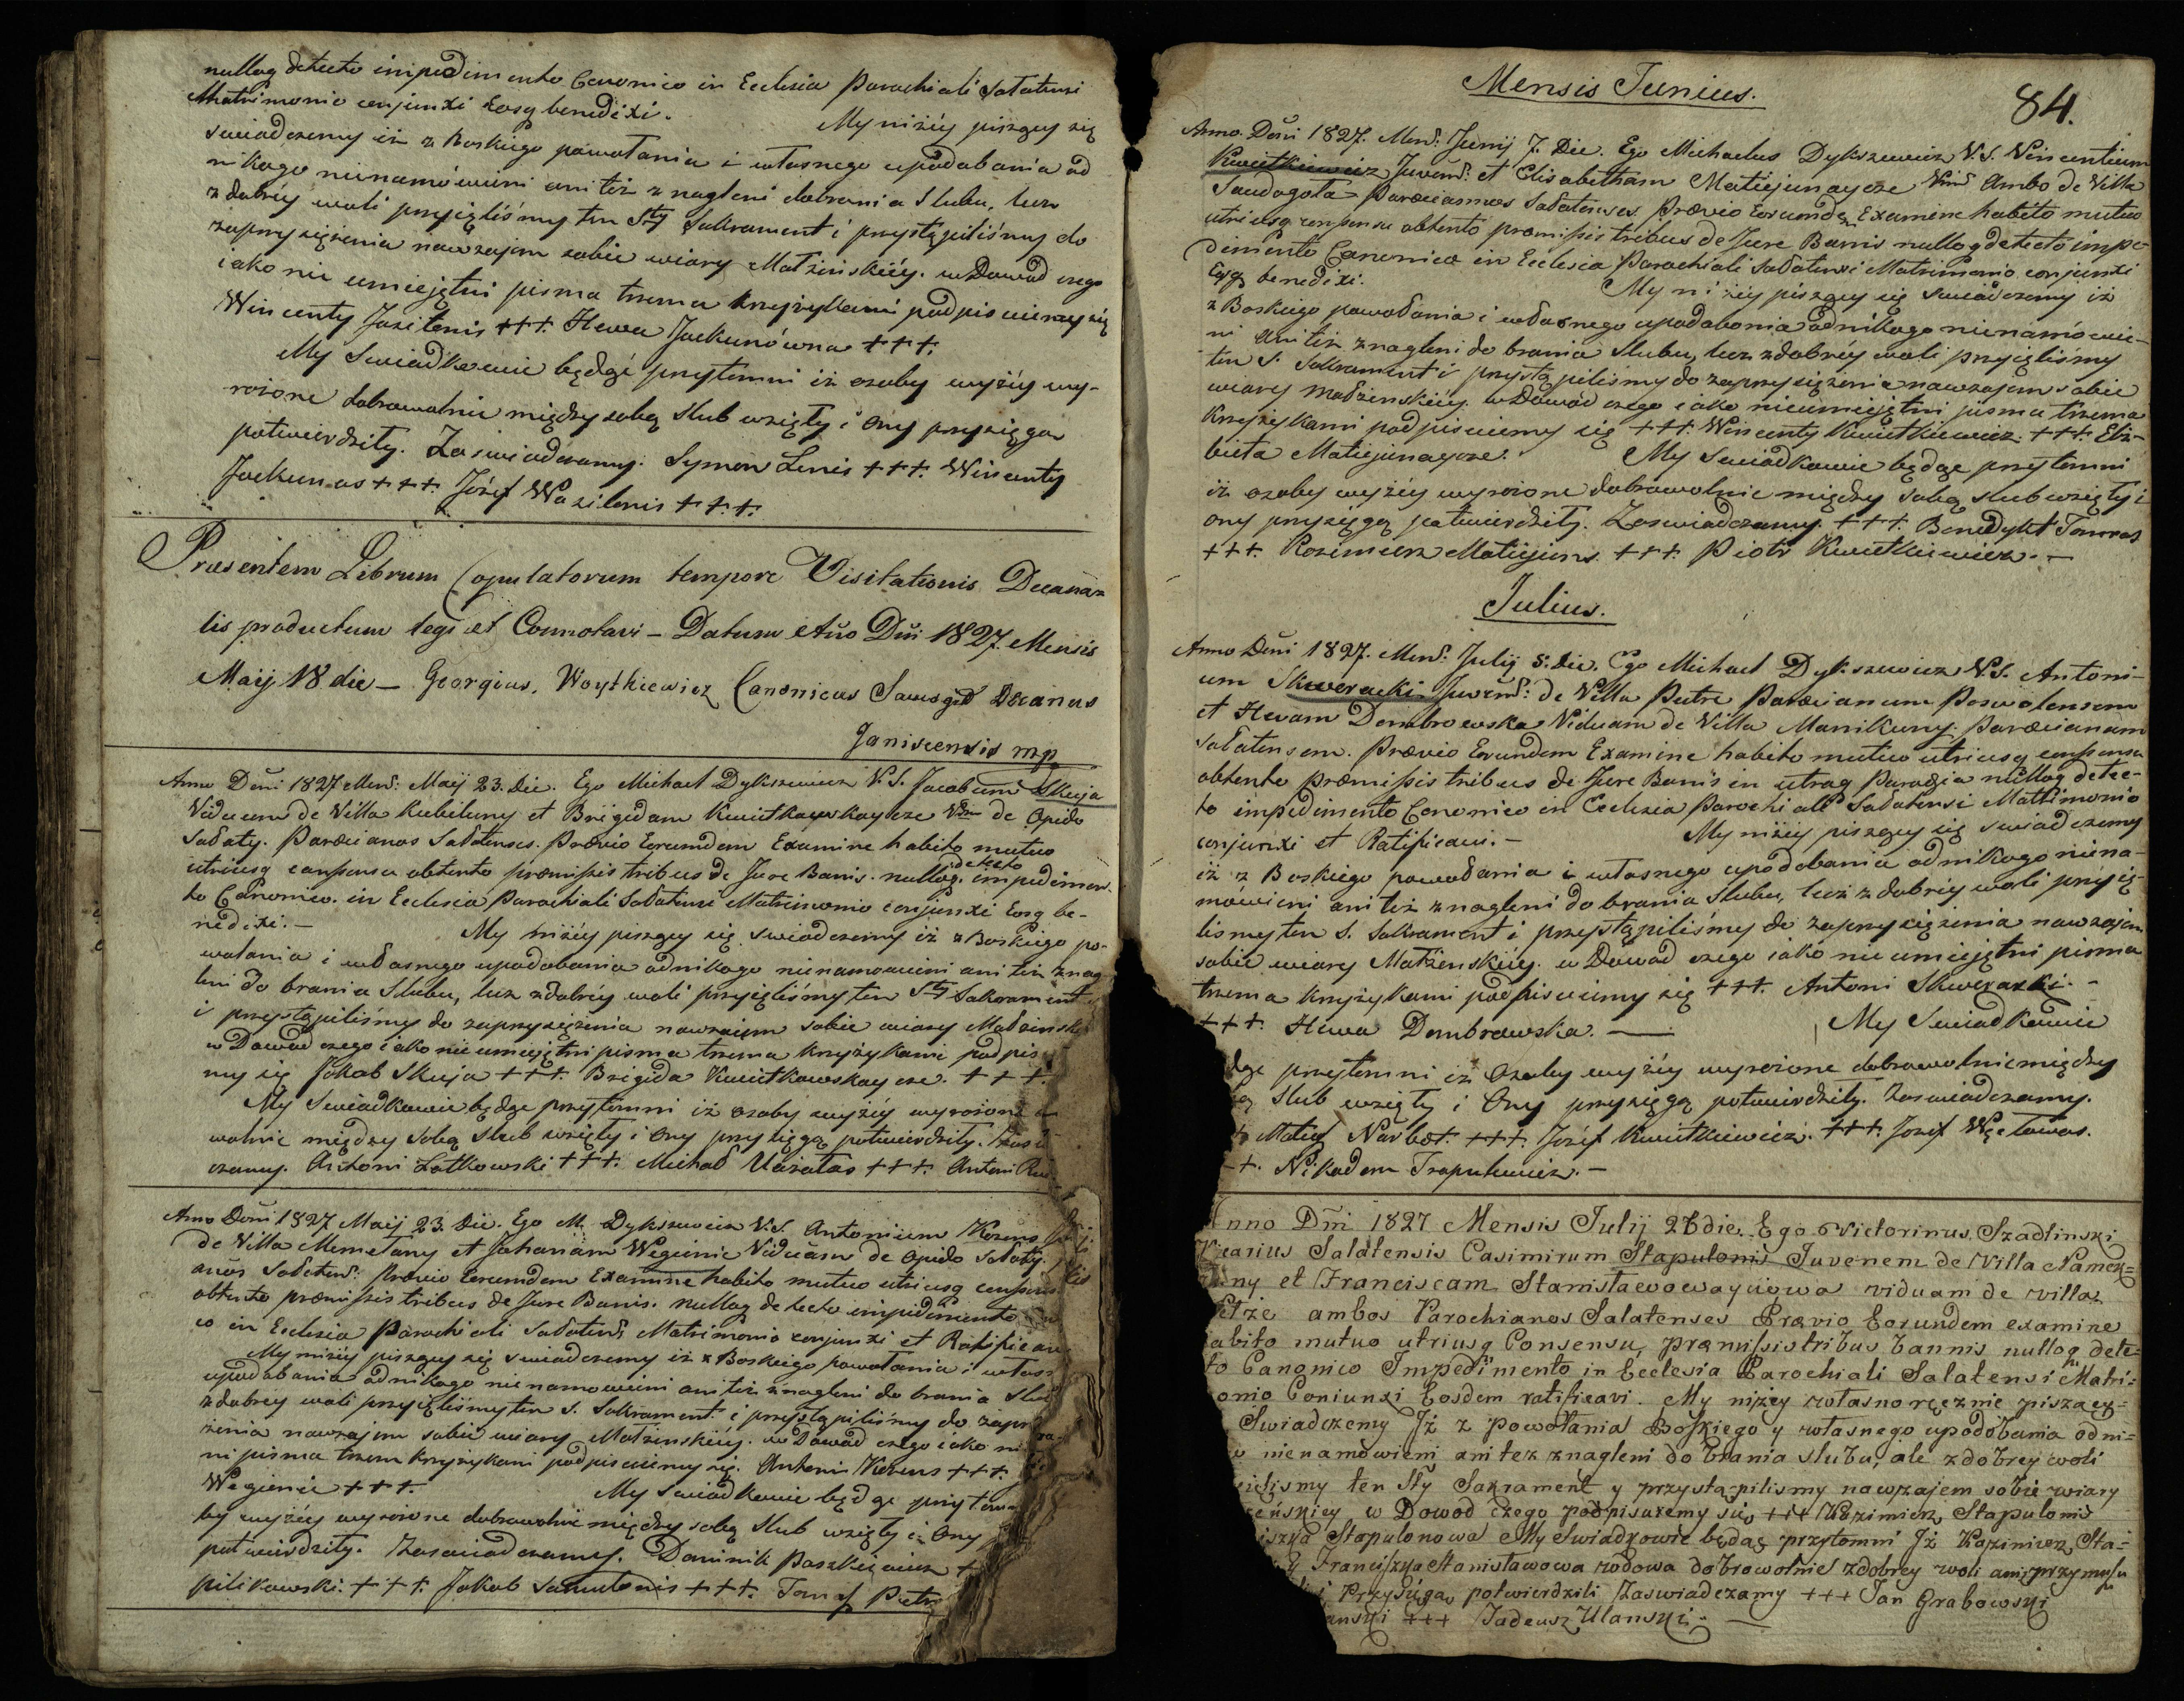 nullog detecto impedimento Canonico in Ecclesia Parochiali Sałatensi
Matrimonio conjunxi Eosq benedixi. My niżéy piszący się
swiadczemy iż z Boskiego powołania i własnego upodobania od
nikogo nienamówieni ani też znagleni dobrania Slubu, lecz
zdobréy woli przyięliśmy ten Sty Sakrament i przystąpiliśmy do
zaprzysiężenia nawzajem sobie wiary Małżeńskiéy. w Dowod czego
iako nie umiejętni pisma trzema krzyżykami podpisuiemy się
Wincenty Jazilenis +++. Hewa Jackunówna +++.
My Swiadkowie będąć przytomni iż osoby wyżéy wy-
rożone dobrowolnie między sobą Slub wzięły i ony przysięgą
potwierdziły. Zaswiadczamy. Symon Lenis +++. Wincenty
Jackunas +++. Józef Wazilenis +++.
Præsentem Librum Copulatorum tempore Visitationis Decana-
lis productum legi et Connotavi – Datum Año Dñi 1827. Mensis
Maij 18 die – Georgius, Woytkiewicz Canonicus Samogit Decanus
Janiscensis mp
Anno Dñi 1827 Mens: Maij 23. Die. Ego Michael Dykszewicz V.S. Jacobum Skuja
Viduum de Villa Kubiluny et Brigidam Kwietkowskaycze Vim de Opido
Sałaty. Paræcianos Sałatenses. Prævio Eorumdem Examine habito mutuo
utriusq consensu obtento præmissis tribus de Jure Banis. nullog. detecto impedimen-
to Canonico. in Ecclesia Parochiali Sałatensi Matrimonio conjunxi Eosq be-
nedixi. – My niżéy piszący się swiadczemy iż z Boskiego po-
wołania i własnego upodobania odnikogo nienamowieni ani też znag-
leni do brania Slubu, lecz zdobréy woli przyięliśmy ten Sty Sakrament
i przystąpiliśmy do zaprzysiężenia nawzajem sobie wiary Małżeńsk
w Dowod czego iako nie umiejętni pisma trzema krzyżykami podpis
my się Jakob Skuja +++. Brigida Kwietkowskaycze. +++.
My Swiadkowie będąc przytomni iż osoby wyżéy wyrożone
wolnie między sobą Slub wzięły i ony przysięgą potwierdziły. Zasw
czamy. Antoni Łatkowski +++. Michał Uażatas +++. Antoni
Anno Dñi 1827 Maij 23. Die. Ego M. Dykszewicz V.S. Antonium Kerens
de Villa Memełany et Johannam Wegienie Viduam de Opido Sałaty.
anos Sałatens: Prævio Eorumdem Examine habito mutuo utriusq consensu
obtento præmissis tribus de Jure Banis. nullog detecto impedimento
co in Ecclesia Parochiali Sałatens. Matrimonio conjunxi et Ratificavi
My niżéy piszący się swiadczemy iż z Boskiego powołania i włas
upodobania odnikogo nienamowieni ani też znagleni do brania Slub
zdobrey woli przyięliśmy ten S. Sakrament i przystąpiliśmy do zaprz
żenia nawzajem sobie wiary Małżeńskiéy. w Dowod czego iako ni
ni pisma trzema krzyżykami podpisuiemy się. Antoni Kerens +++.
Wegienie +++. My Swiadkowie będąc przytom
by wyżéy wyrożone dobrowolnie między sobą Slub wzięły i Ony
potwierdziły. Zaswiadczamy. Dominik Paszkiewicz +
pilikowski. +++. Jakob Samulonis +++. Tomasz Pietr
Mensis Junius.
84.
Anno. Dñi 1827. Mens: Junij 7. Die. Ego Michaelus Dykszewicz V.S. Vincentium
Kwietkiewicz Juvens: et Elisabetham Matiejunaycze Vim Ambo de Villa
Saudogoła Paræcianos Sałatenses. Prævio Eorumdem Examine habito mutuo
utriusq consensu obtento præmissis tribus de Jure Banis nullog detecto impe-
dimento Canonico in Ecclesia Parochiali Sałatensi Matrimonio conjunxi
Eosq benedixi. My niżéy piszący się swiadczemy iż
z Boskiego powołania i własnego upodobania odnikogo nienamówie-
ni ani też znagleni do brania Slubu, lecz zdobréy woli przyięliśmy
ten S. Sakrament i przystąpiliśmy do zaprzysiężenia nawzajem sobie
wiary Małżenskiéy. w Dowod czego iako nieumiejętni pisma trzema
krzyżykami podpisuiemy się +++. Wincenty Kwietkiewicz. +++. Elż-
bieta Matiejunaycze. My Swiadkowie będąc przytomni
iż osoby wyżéy wyrożone dobrowolnie między sobą slub wzięły i
ony przysięgą potwierdziły. Zaswiadczamy. +++. Benedykt Tamras
+++. Kazimierz Matiejuns. +++. Piotr Kwietkiewicz. –
Julius.
Anno Dñi 1827. Mens: Julij 5. Die. Ego Michael Dykszewicz V.S. Antoni-
um Skweracki Juvens: de Villa Putre Paræcianum Poswolensem
et Hevam Dombrowska Viduam de Villa Manikuny Paræcianam
Sałatensem. Prævio Eorundem Examine habito mutuo utriusq consensu
obtento præmissis tribus de Jure Banis in utraq Paræcia nullog detec-
to impedimento Canonico in Ecclesia Parochiali Sałatensi Matrimonio
conjunxi et Ratificavi. – My niżéy piszący się swiadczemy
iż z Boskiego powołania i własnego upodobania odnikogo niena-
mówieni ani też znagleni do brania Slubu, lecz zdobréy woli przyię-
liśmy ten S. Sakrament i przystąpiliśmy do zaprzysiężenia nawzajem
sobie wiary Małżenskiéy. w Dowod czego iako nie umiejętni pisma
trzema krzyżykami podpisuiemy się +++. Antoni Skweracki. –
+++. Hewa Dombrowska. — My Swiadkowie
dąc przytomni iż Osoby wyżéy wyrożone dobrowolnie między
Slub wzięły i Ony przysięgą potwierdziły. Zaswiadczamy.
Matiej Narbot. +++. Józef Kwietkiewicz. +++. Jozef Węcławas.
+. Nikodem Trapukiewicz. –
nno Dñi 1827 Mensis Julij 26 die. Ego Victorinus Szadlinski
Vicarius Salatensis Casimirum Stapulonis Juvenem de Villa Namen=
ny et Franciscam Stanisławowayciowa viduam de villa
ambos Parochianos Salatenses Prævio Eorundem examine
abito mutuo utriusq Consensu, præmissis tribus bannis nulloq dete=
to Canonico Impedimento in Ecclesia Parochiali Salatensi Matri=
onio Coniunxi Eosdem ratificavi. My niżey własno ręcznie piszący=
Swiadczemy Jż z Powołania Boskiego y własnego upodobania od ni=
nienamowieni ani tez znagleni do brania slubu, ale zdobrey woli
ielismy ten Sty Sakrament y przystąpilismy nawzajem sobie wiary
żeńskiey w Dowod czego podpisuiemy się +++ Kazimierz Stapulonis
iszka Stapulonowa My Swiadkowie będąc przytomni Jż Kazimierz Sta=
y Franciszka Stanisławowa wdowa dobrowolnie zdobrey woli ani przymusu
Przysięgą potwierdzili Zaswiadczamy +++ Jan Grabowski
anski +++ Tadeusz Ulanski. —